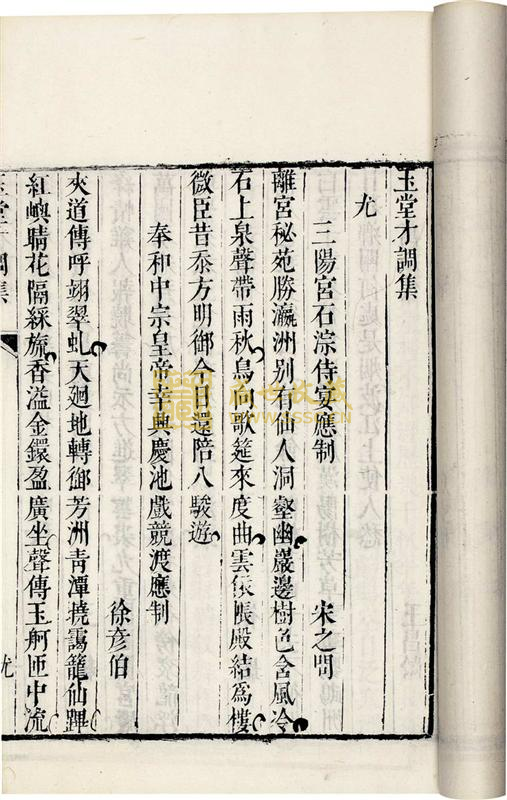 玉堂才調集
尤
三陽宮石淙侍宴應制 宋之問
離宮秘苑勝瀛洲别有仙人洞壑幽巖邊樹色含風冷
石上泉聲帶雨秋鳥向歌筵來度曲雲依帳殿結爲樓
微臣昔忝方明御今日還陪八駿遊
奉和中宗皇帝幸興慶池戲競渡應制
徐彦伯
夾道傳呼翊翠虬天廻地轉御芳洲青潭曉靄籠仙蹕
紅嶼晴花隔綵旒香溢金鐶盈廣坐聲傳玉舸匝中流
玉堂才調集 尤